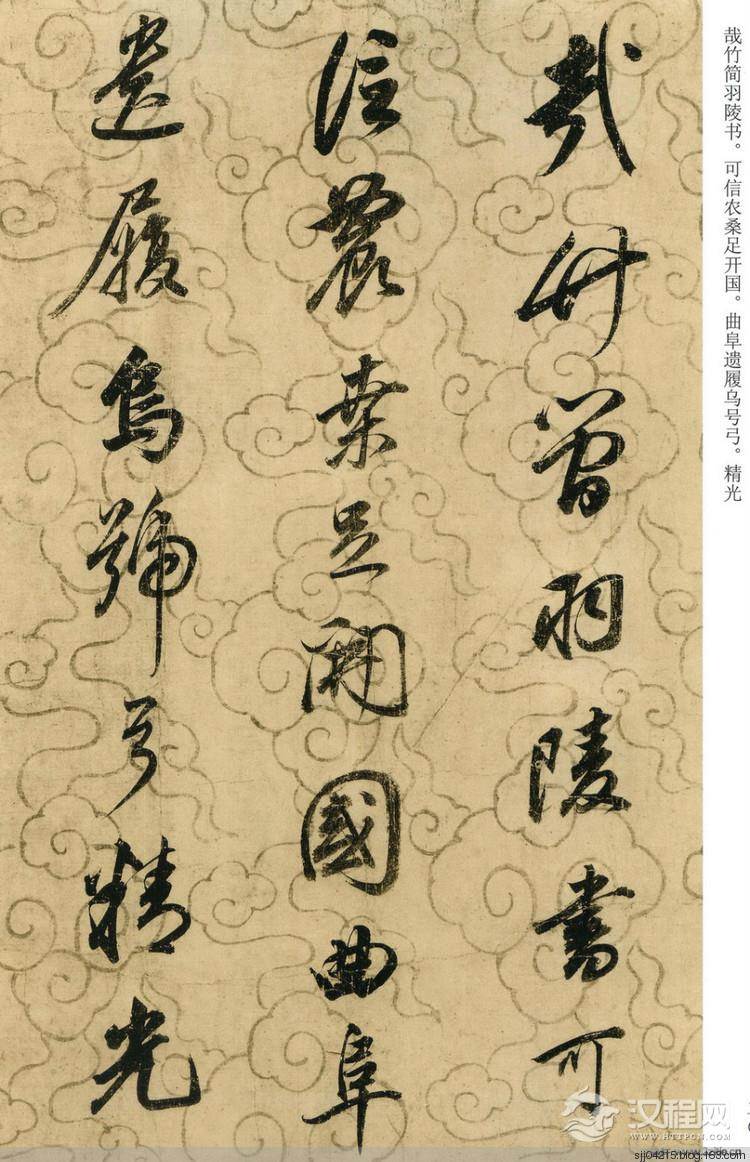 哉竹简羽陵书。可信农桑足开国。曲阜遗履乌号弓。精光
哉竹簡羽陵書可
信農桒足開國曲阜
遺履烏號弓精光
汉程网
WWW.HTTPCN.COM
sjj04215.blog.163.com